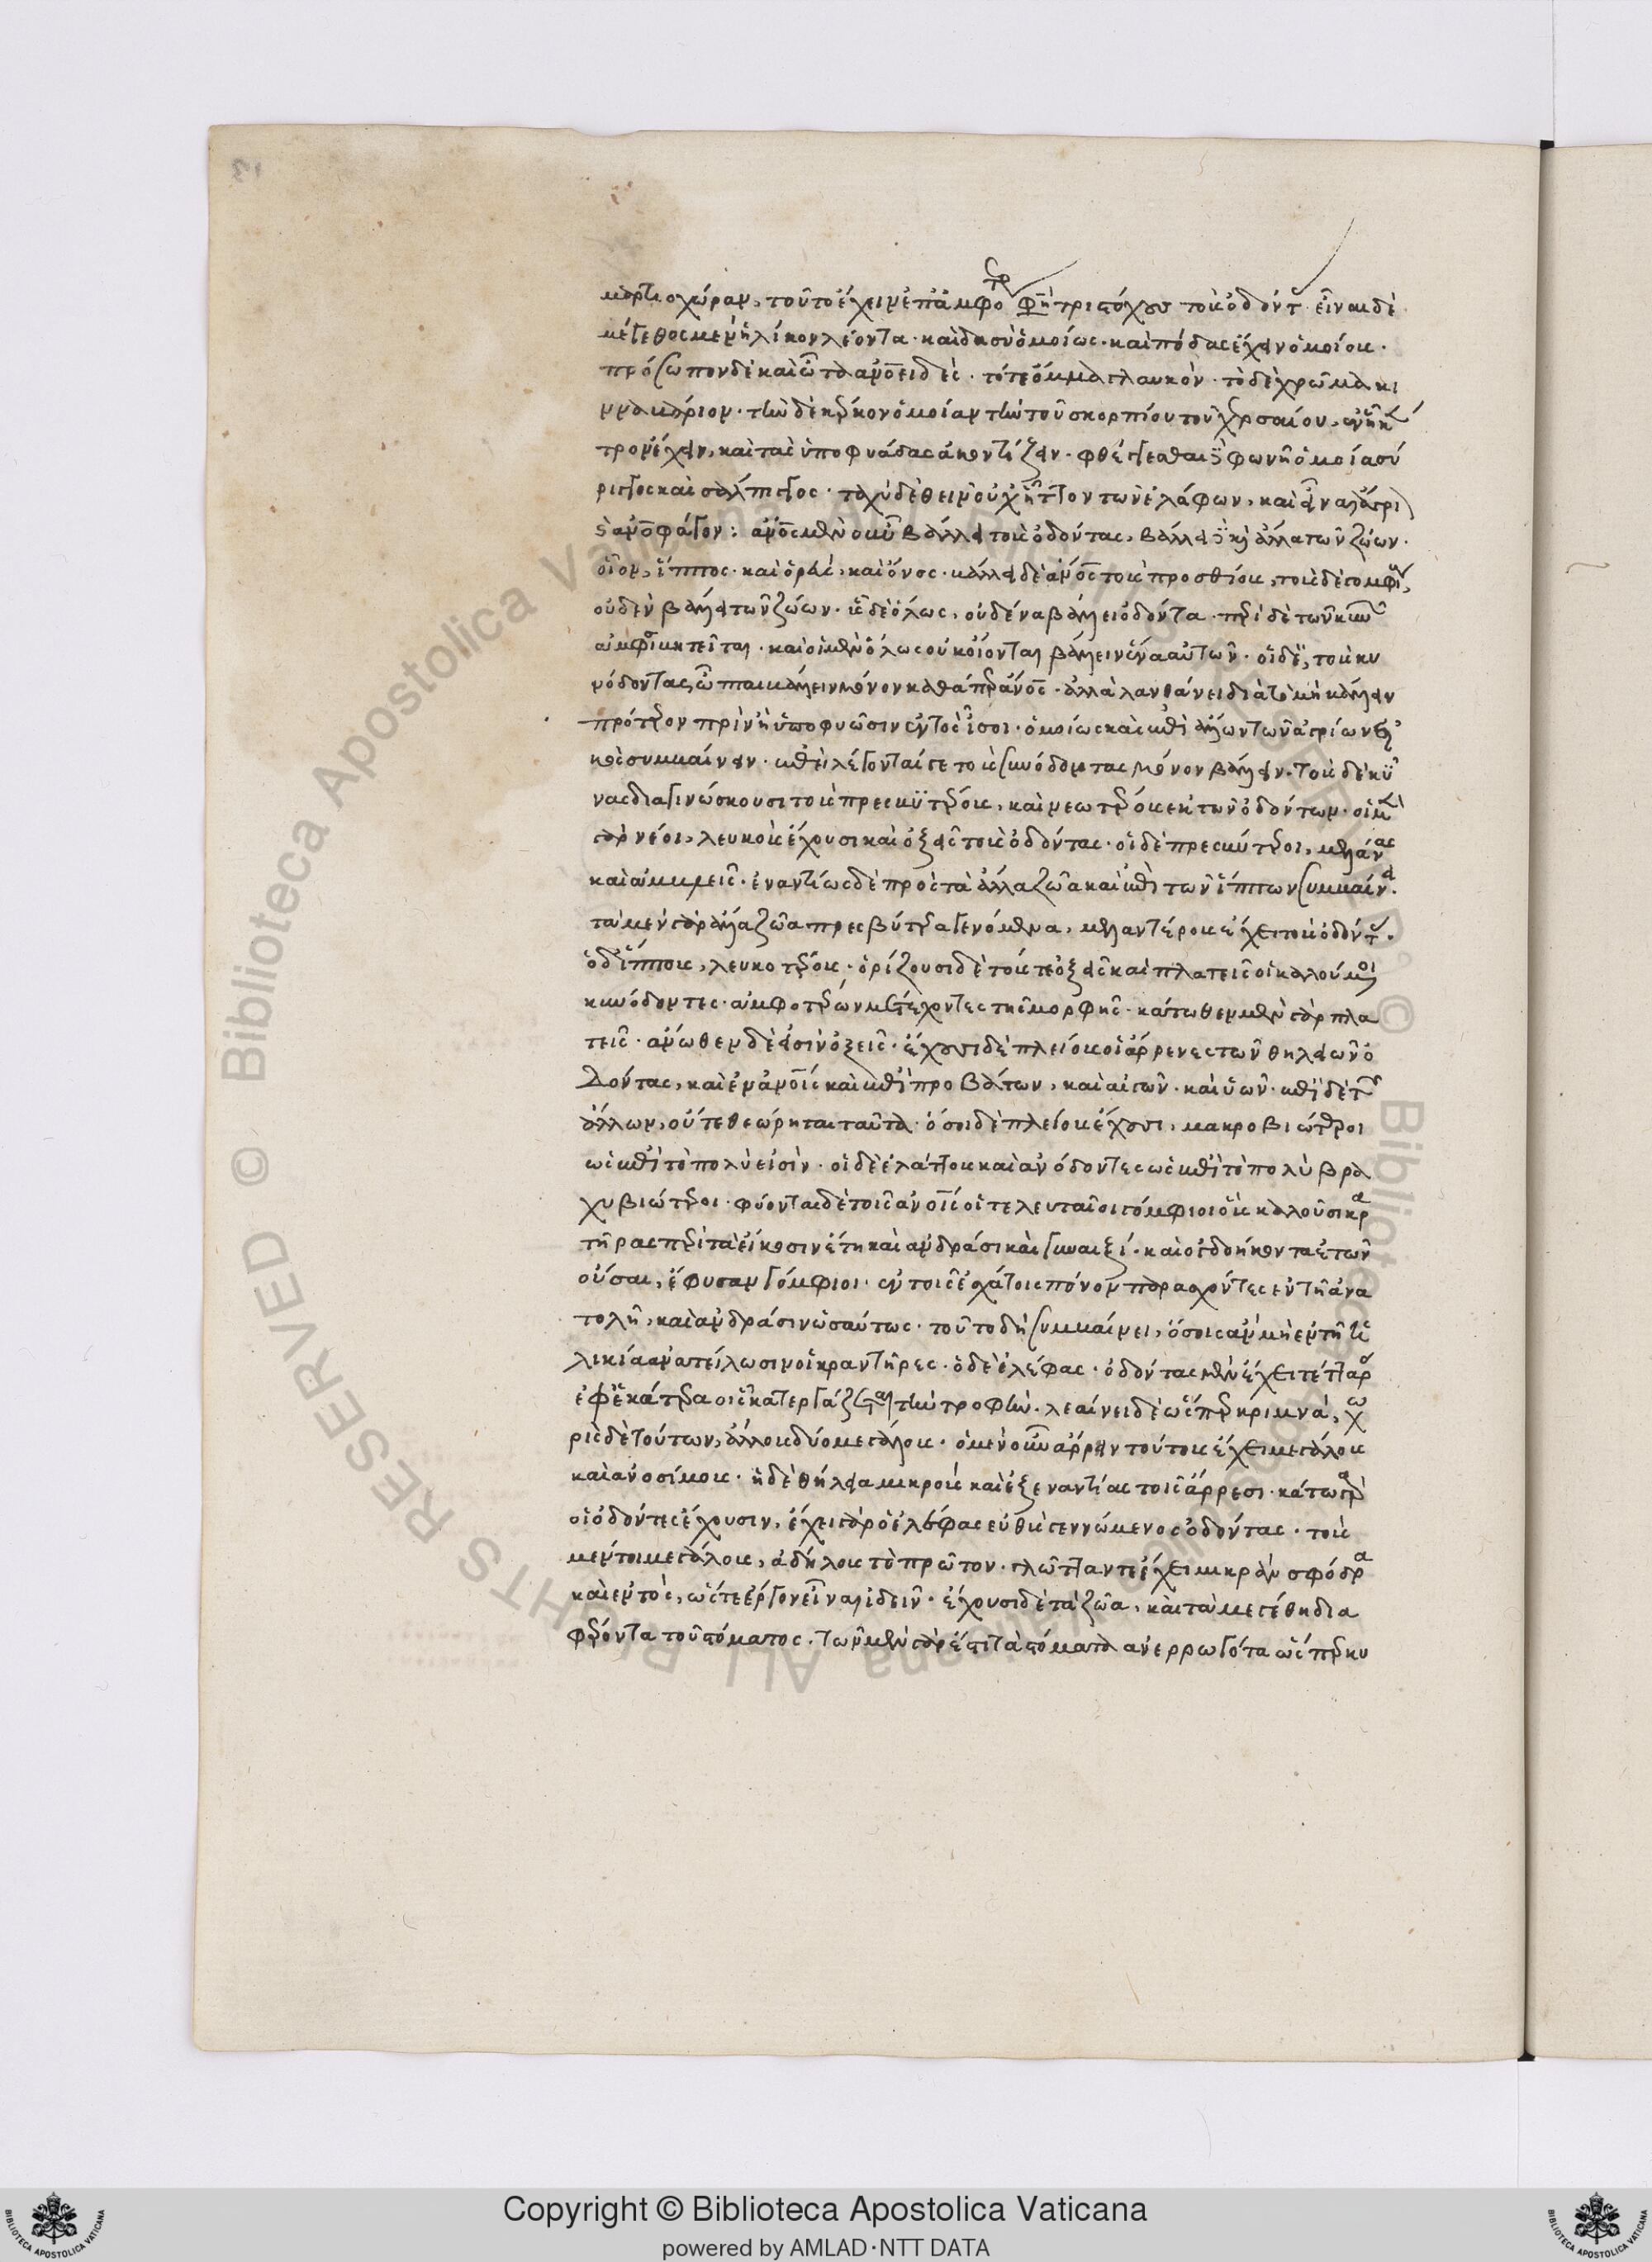 μαρτιοχώραν, τοῦτο ἔχειν ἐπ' ἀμφο τρ φησὶ τριστόχους τοὺς ὀδόντας· εἶναι δὲ
μέγεθος μὲν ἡλίκον λέοντα· καὶ δασὺ ὁμοίως· καὶ πόδας ἔχειν ὁμοίους·
πρόσωπον δὲ καὶ ὦτα ἀνοειδές· τό τε ὄμμα γλαυκόν· τὸ δὲ χρῶμα κι
νναβάριον· τὴν δὲ κέρκον ὁμοίαν τὴν τοῦ σκορπίου τοῦ χερσαίου, ἐν ᾗ κέ
τρον ἔχειν, καὶ τὰς ὑποφυάδας ἀκοντίζειν· φθέγγεσθαι δὲ φωνῇ ὁμοία σύ
ριγγος καὶ σάλπιγγος· ταχὺ δὲ θεῖν οὐχ ἧττον τῶν ἐλάφων, καὶ εἶναι ἄγρι
ον ἀνοφάγον: ἄνος μὲν οὖν βάλλει τοὺς ὀδόντας, βάλλει δὲ καὶ ἄλλα τῶν ζώων·
οἷον, ἵππος· καὶ ὀρεύς, καὶ ὄνος· βάλλει δὲ ἄνος τοὺς προσθίους, τοὺς δὲ γομφί,
οὐδὲν βάλλει τῶν ζώων· ὗς δὲ ὅλως, οὐδένα βάλλει ὀδόντα· περὶ δὲ τῶν κυνῶν
ἀμφισβητεῖται· καὶ οἱ μὲν ὅλως οὐκ οἴονται βάλλειν ἕνα αὐτῶν· οἱ δὲ, τοὺς κυ
νόδοντας ὦπται βάλλειν μόνον καθάπερ ἄνος· ἀλλὰ λανθάνει διὰ τὸ μὴ βάλλειν
πρότερον πρὶν ἢ ὑποφυῶσιν ἐντὸς ἴσοι· ὁμοίως καὶ ἐπὶ ἄλλων τῶν ἀγρίων εἰ
κὸς συμβαίνειν· ἐπεὶ λέγονταί γε τοὺς κυνόδοντας μόνον βάλλειν· τοὺς δὲ κύ
νας διαγινώσκουσι τοὺς πρεσβυτέρους, καὶ νεωτέρους ἐκ τῶν ὀδόντων· οἱ μὲν
γὰρ νέοι, λευκοὺς ἔχουσι καὶ ὀξεῖς τοὺς ὀδόντας· οἱ δὲ πρεσβύτεροι, μέλανας
καὶ ἀμβλεῖς· ἐναντίως δὲ πρὸς τὰ ἄλλα ζῶα καὶ ἐπὶ τῶν ἵππων συμβαίνει·
τὰ μὲν γὰρ ἄλλα ζῶα πρεσβύτερα γενόμενα, μελαντέρους ἔχει τοὺς ὀδόντας·
ὁ δ' ἵππος, λευκοτέρους· ὁρίζουσι δὲ τούς τε ὀξεῖς καὶ πλατεῖς οἱ καλούμενοι
κυνόδοντες· ἀμφοτέρων μετέχοντες τῆς μορφῆς· κάτωθεν μὲν γὰρ πλα
τεῖς· ἄνωθεν δέ εἰσιν ὀξεῖς· ἔχουσι δὲ πλείους οἱ ἄρρενες τῶν θηλειῶν ὀ
δόντας, καὶ ἐν ἀνοῖς καὶ ἐπὶ προβάτων, καὶ αἰγῶν· καὶ ὑῶν· ἐπὶ δὲ τῶν
ἄλλων, οὔ τεθεώρηται ταῦτα· ὅσοι δὲ πλείους ἔχουσι, μακροβιώτεροι
ὡς ἐπὶ τὸ πολύ εἰσιν· οἱ δὲ ἐλάττους καὶ ἀνόδοντες ὡς ἐπὶ τὸ πολὺ βρα
χυβιώτεροι· φύονται δὲ τοῖς ἀνοῖς οἱ τελευταῖοι γόμφιοι οὓς καλοῦσι κρα
τῆρας περὶ τὰ εἴκοσιν ἔτη καὶ ἀνδράσι καὶ γυναιξί· καὶ ὀγδοήκοντα ἐτῶν
οὖσαι, ἔφυσαν γόμφιοι· ἐν τοῖς ἐσχάτοις πόνον παρασχόντες ἐν τῇ ἀνα
τολῇ, καὶ ἀνδράσιν ὡσαύτως· τοῦτο δὴ συμβαίνει, ὅσοις ἂν μὴ ἐν τῇ ἡ
λικία ἀνατείλωσιν οἱ κραντῆρες· ὁ δὲ ἐλέφας· ὀδόντας μὲν ἔχει τέτταρ
ἐφ' ἑκάτερα οἷς κατεργάζεται τὴν τροφήν· λεαίνει δὲ ὥσπερ κριμνά, χω
ρὶς δὲ τούτων, ἄλλους δύο μεγάλους· ὁ μὲν οὖν ἄρρην τούτους ἔχει μεγάλους
καὶ ἀνοσίμους· ἡ δὲ θήλεια μικροὺς καὶ ἐξεναντίας τοῖς ἄρρεσι· κάτω γὰρ
οἱ ὀδόντες ἔχουσιν, ἔχει γὰρ ὁ ἐλέφας εὐθὺς γεννώμενος ὀδόντας· τοὺς
μέντοι μεγάλους, ἀδήλους τὸ πρῶτον· γλῶτταν τε ἔχει μικρὰν σφόδρα
καὶ ἐντός, ὥστε ἔργον εἶναι ἰδεῖν· ἔχουσι δὲ τὰ ζῶα, καὶ τὰ μεγέθη δια
φέροντα τοῦ στόματος· τῶν μὲν γάρ ἐστι τὰ στόματα ἀνερρωγότα ὥσπερ κυ